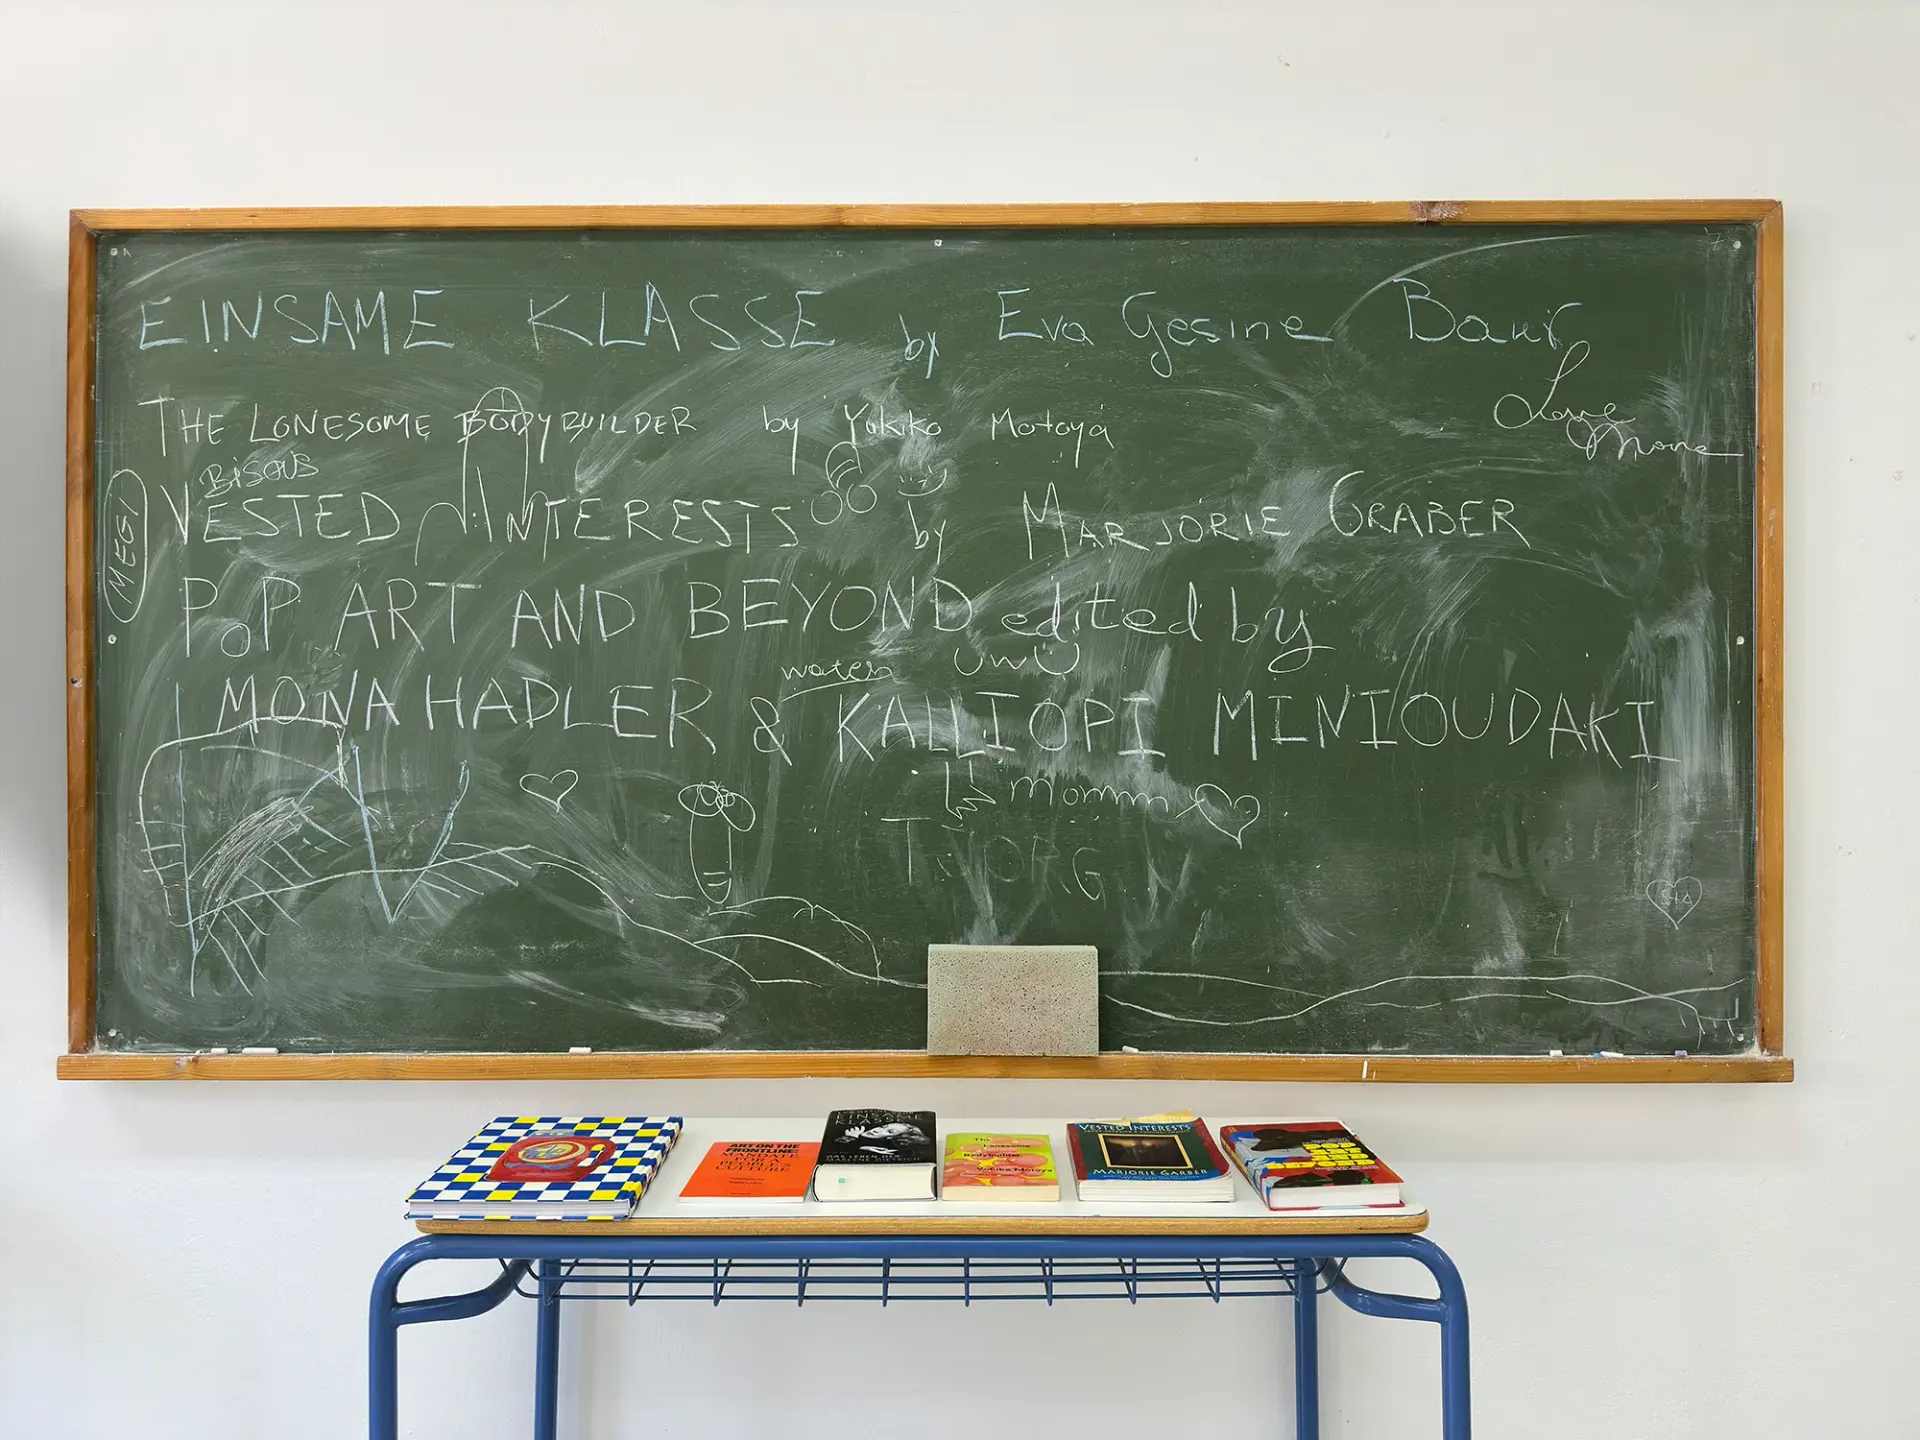 EINSAME KLASSE by Eva Gesine Baur
Love
Mona
THE LONESOME BODYBUILDER by Yukiko Motoya
BISOUS
MEGI
VESTED INTERESTS by MARJORIE GRABER
POP ART AND BEYOND edited by
water UwU
MONA HADLER & KALLIOPI MINIOUDAKI
momm
SIA
ART ON THE
FRONTLINE:
MANDATE
FOR A
PEOPLE'S
CULTURE
EINSAME
KLASSE
DAS LEBEN DER
MARLENE DIETRICH
The
Lonesome
Bodybuilder
Yukiko Motoya
VESTED INTERESTS
MARJORIE GARBER